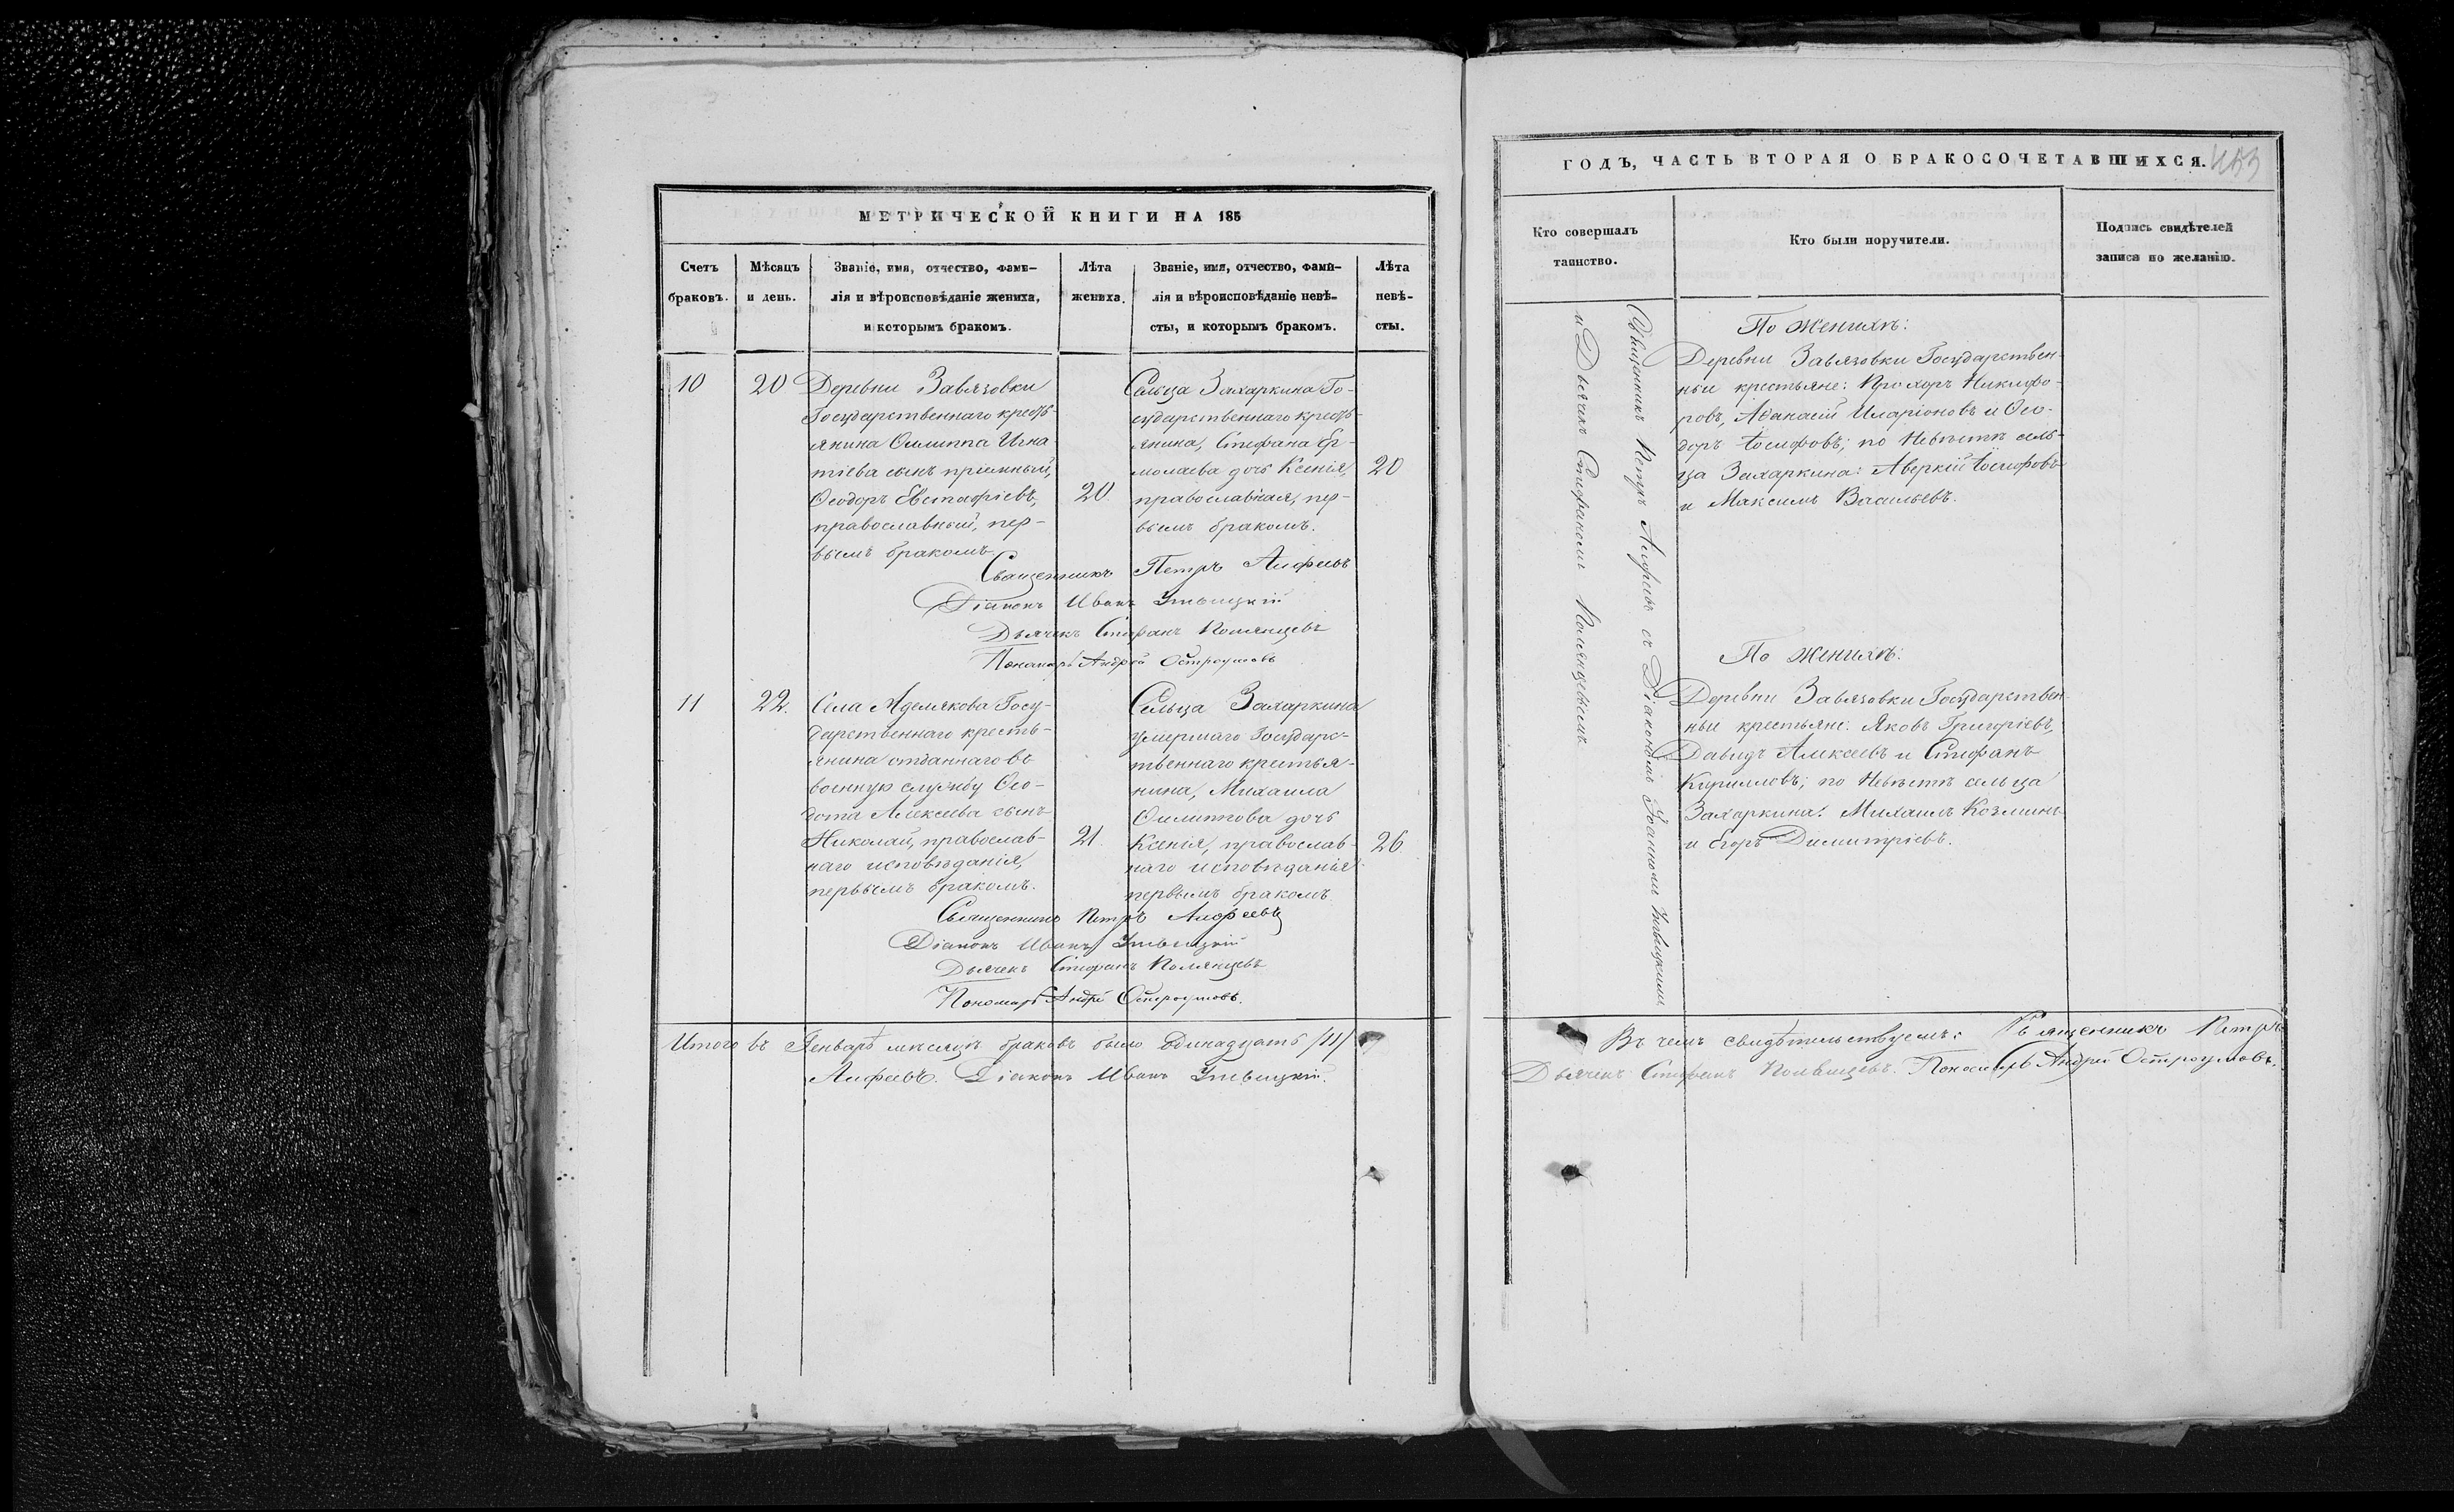 МЕТРИЧЕСКОЙ КНИГИ НА 185
Счетъ браковъ.
Мѣсяцъ и день.
Званіе, имя, отчество, фами-
лія и вѣроисповѣданіе жениха,
и которымъ бракомъ.
Лѣта жениха.
Званіе, имя, отчество, фами-
лія и вѣроисповѣданіе невѣ-
сты, и которымъ бракомъ.
Лѣта невѣ-
сты.
10
20
Деревни Завязовки
Государственнаго кресть-
янина Филиппа Игна-
тіева сынъ пріемный,
Ѳеодоръ Евстафіевъ,
православный, пер-
вымъ бракомъ.
20.
Сельца Захаркина Го-
сударственнаго кресть-
янина, Стефана Ер-
молаева дочь Ксенія,
православная, пер-
вымъ бракомъ.
20
Священникъ Петръ Алфеевъ
Діаконъ Иванъ
Дьячекъ Стефанъ
Пономарь Андрей Остроумовъ
11
22.
Села Аделякова Госу-
дарственнаго кресть-
янина отданнаго въ
военную службу Ѳео-
дота Алексеева сынъ
Николай, православ-
наго исповѣданія,
первымъ бракомъ.
21.
Сельца Захаркина
умершаго Государс-
твеннаго крестья-
нина, Михаила
Филиппова дочь
Ксенія, православ-
наго исповѣданія
первымъ бракомъ
26
Священникъ Петръ Алфеевъ
Діаконъ Иванъ
Дьячекъ Стефанъ
Пономарь Андрей Остроумовъ.
Итого въ Генварѣ месяцѣ браковъ было Одинадцать /11/
Алфеевъ. Діаконъ Иванъ
ГОДЪ, ЧАСТЬ ВТОРАЯ О БРАКОСОЧЕТАВШИХСЯ.
Кто совершалъ
таинство.
Кто были поручители.
Подпись свидѣтелей
записи по желанію.
Священникъ Петръ Алфеевъ съ Діакономъ Іоанномъ
и Дьячекъ Стефаномъ
По женихѣ:
Деревни Завязовки Государствен-
ныи крестьяне: Прохоръ Никифо-
ровъ, Афанасій Иларіоновъ и Ѳео-
доръ Іосифовъ; по Невѣстѣ сель-
ца Захаркина: Аверкій Іосифовъ
и Максимъ Васильевъ.
По женихѣ:
Деревни Завязовки Государствен-
ныи крестьяне: Яковъ Григоріевъ,
Давидъ Алексеевъ и Стефанъ
Кирилловъ; по Невѣстѣ сельца
Захаркина: Михаилъ Козминъ
и Егоръ Димитріевъ.
Въ чемъ свидѣтельствуемъ: Священникъ Петръ
Дьячекъ Стефанъ Пономарь Андрей Остроумовъ.